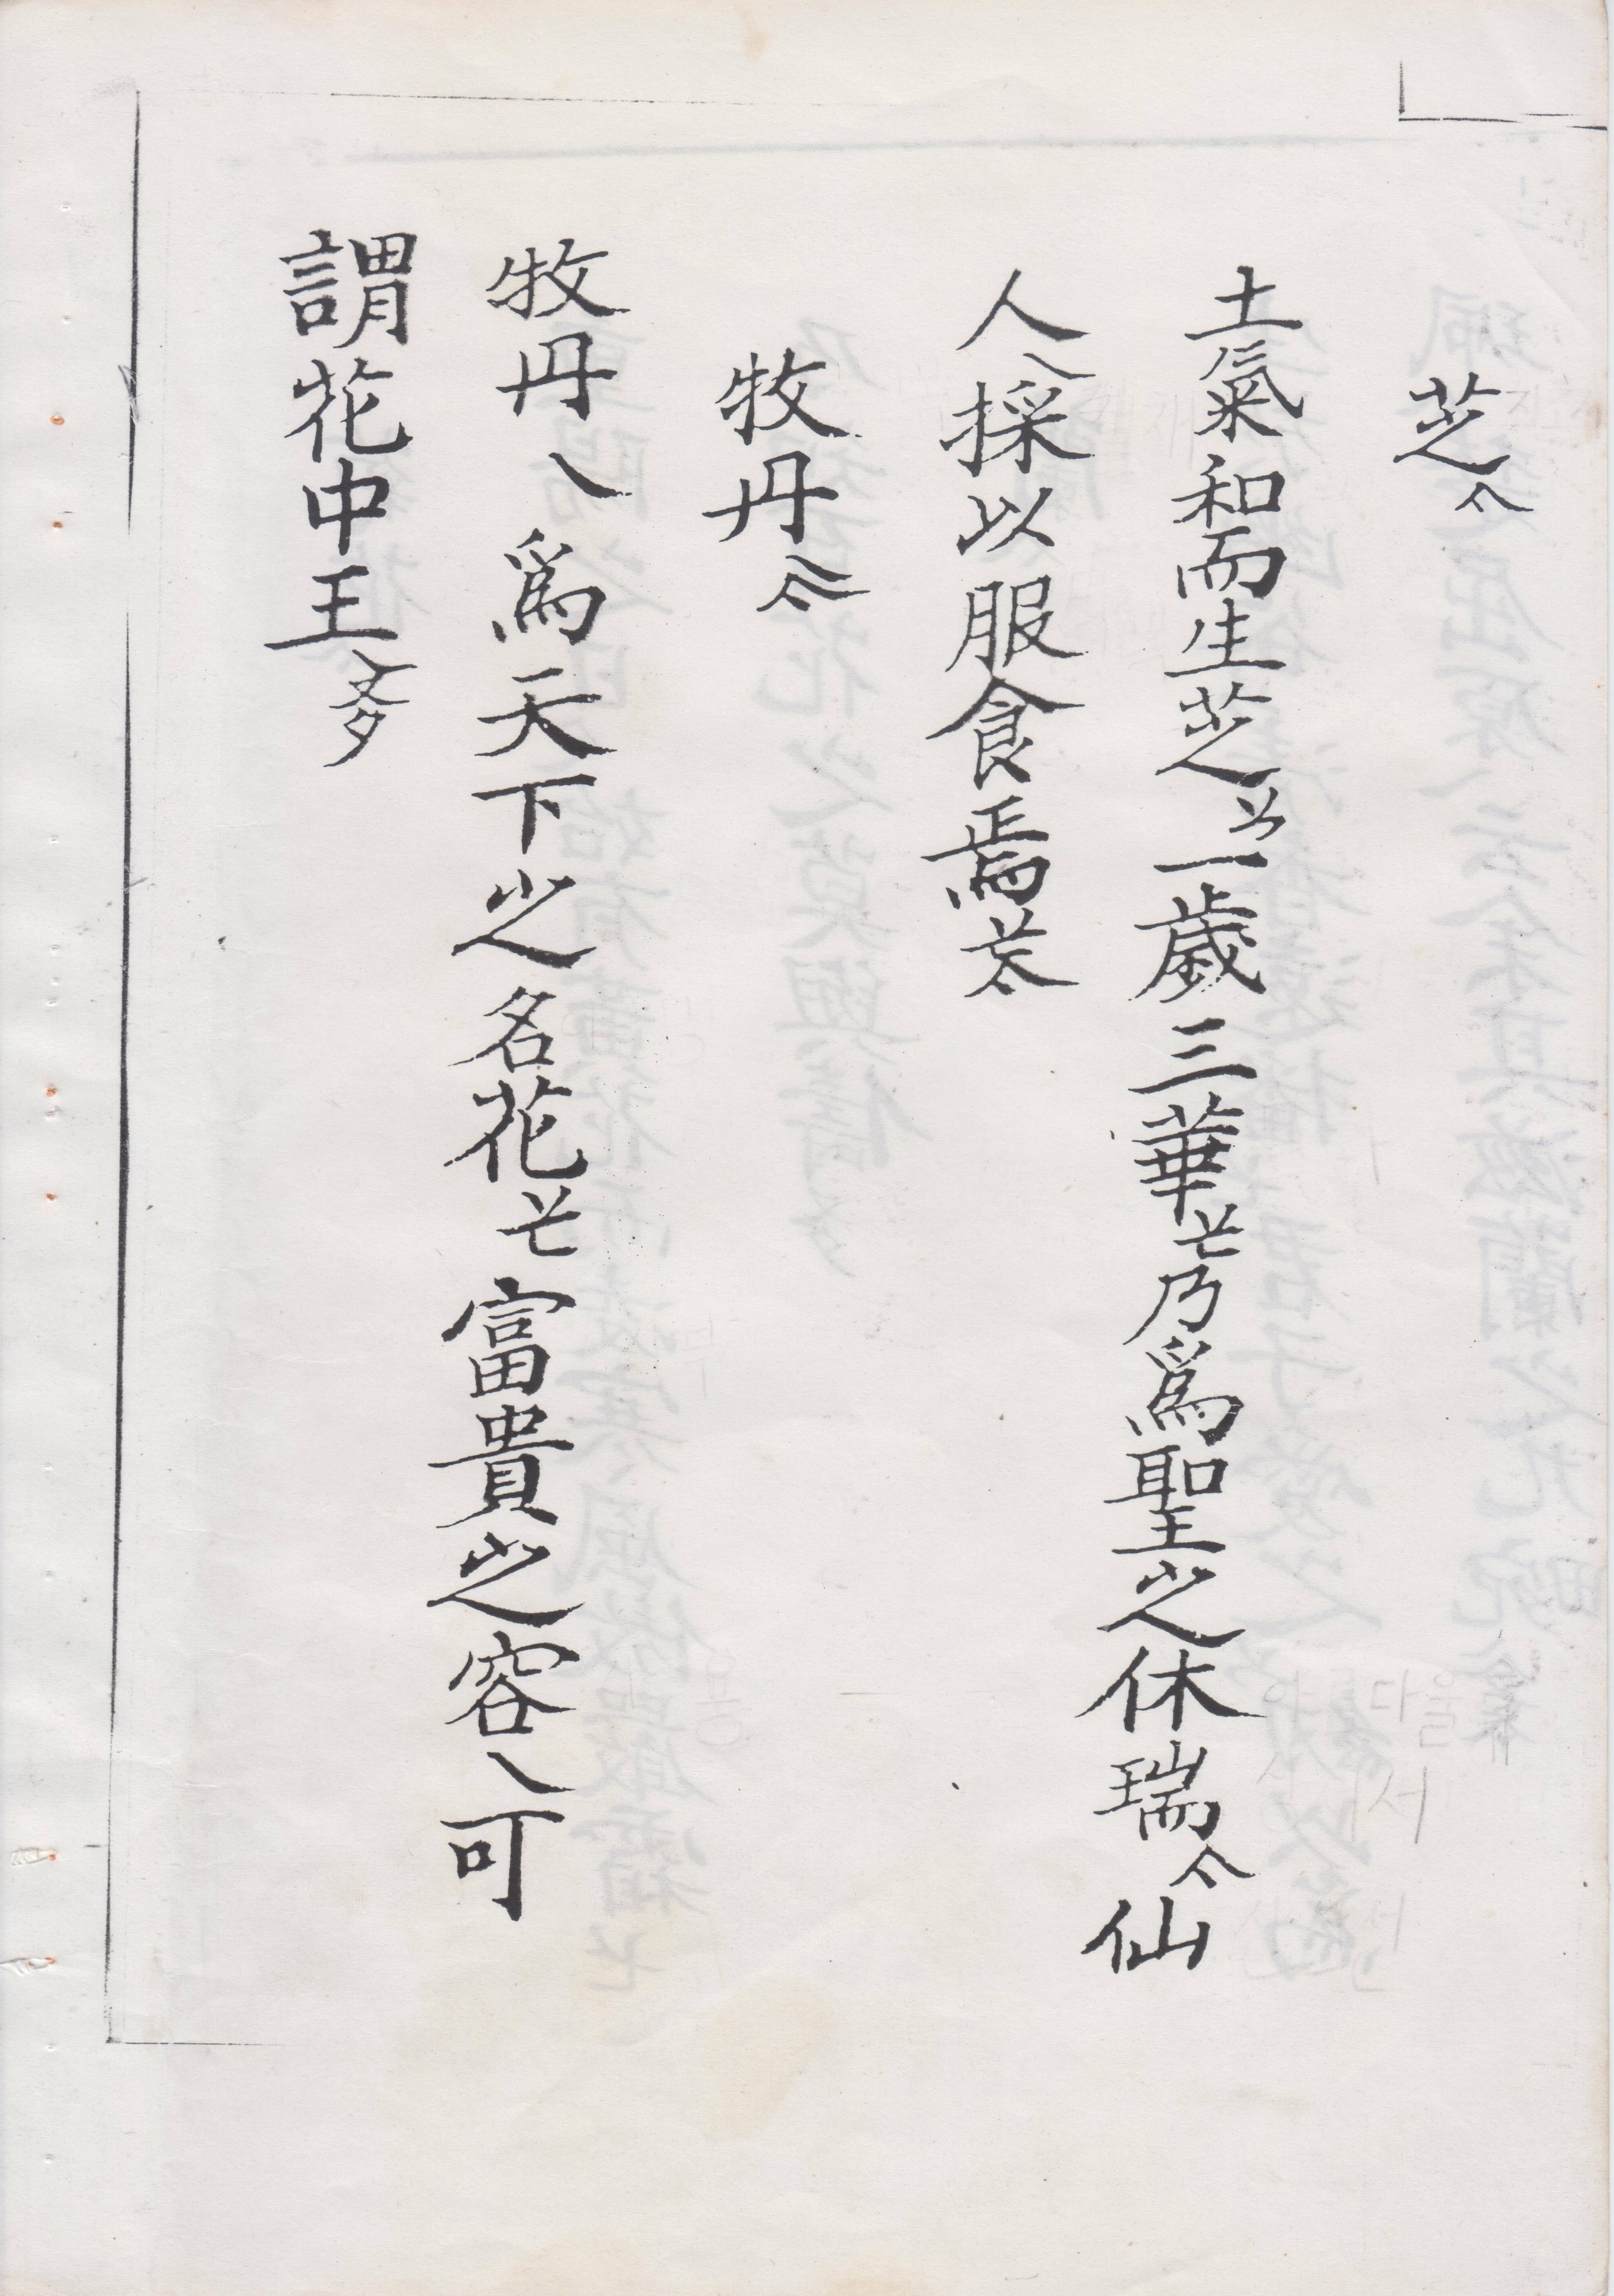 芝亽
土氣和而生芝一歲三華乃爲聖之休瑞亽仙
人乀採以服食焉
牧丹
牧丹乀爲天下之名花富貴之容乀可
謂花中王